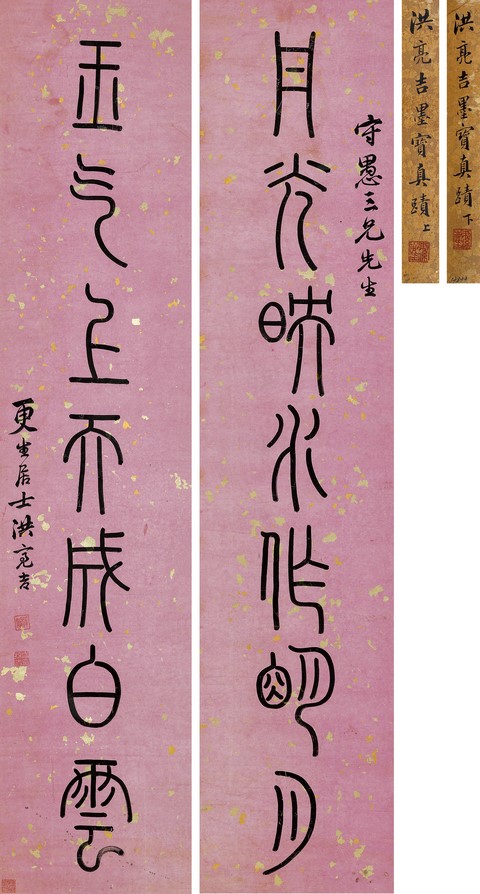 丹光映水作明月
守愚三兄先生
玉气上天成白雲
更生居士洪亮吉
洪亮吉墨寶真蹟上
洪亮吉墨寶真蹟下